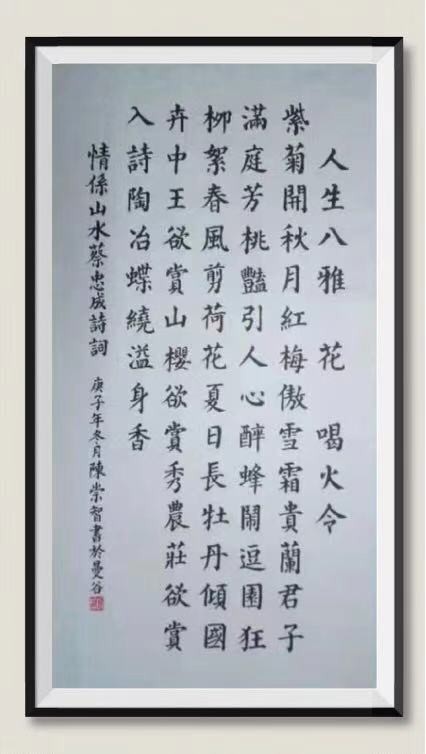 人生八雅 花 喝火令
紫菊開秋月紅梅傲雪霜貴蘭君子
滿庭芳桃豔引人心醉蜂鬧逗園狂
柳絮春風剪荷花夏日長牡丹傾國
卉中王欲賞山櫻欲賞秀農莊欲賞
入詩陶冶蝶繞溢身香
情係山水蔡忠成詩詞
庚子年冬月陳崇智書於曼谷